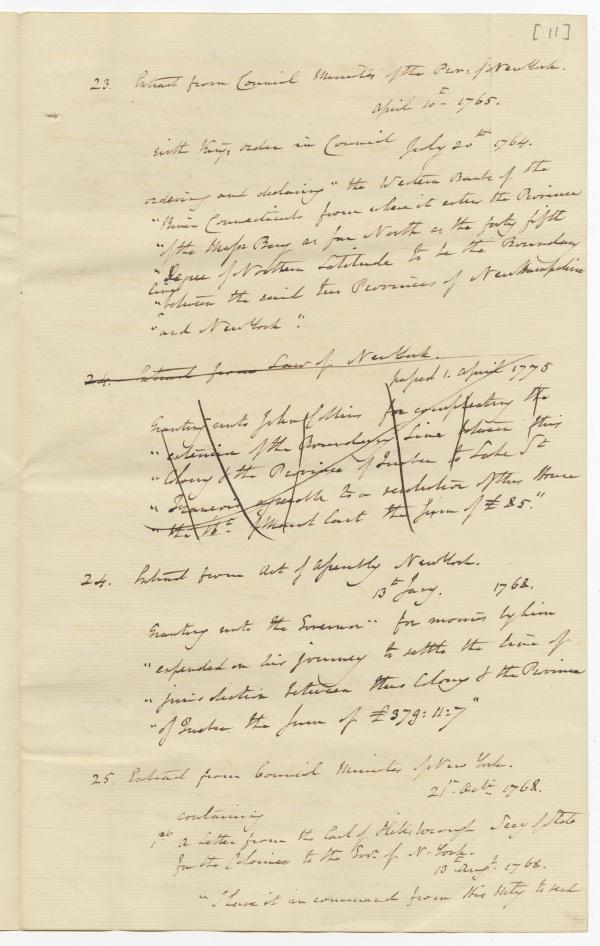 [11]
23. Extract from Council Minutes of the Prov: of New York.
April 10th 1765.
with Kings order in Council July 20th 1764.
ordering and declaring "the Western Bank of the
"River Connecticut from where it enters the Province
"of the Massts Bay as far North as the forty fifth
"Degree of Northern Latitude to be the Boundary
line
"between the said two Provinces of New Hampshire
"and New York".
24. Extract from Law of New York.
passed 1. April 1775
Granting unto John Collins for compleating the
"extension of the Boundary Line between this
"Colony & the Province of Quebec to Lake St
"Francois agreeable to a resolution of this House
"the 16th of March last the Sum of £85."
24. Extract from Act of Assembly New York.
13th Jany. 1768.
Granting unto the Governor "for monies by him
"expended on his journey to settle the line of
"jurisdiction between this Colony & the Province
"of Quebec the Sum of £379:11:7"
25. Extract from Council Minutes of New York.
21st Octr 1768.
containing
a Letter from the Earl of Hillsborough Secy of State
for the Colonies to the Govr of N-York.
13th Augt 1768.
"I have it in command from His Majty to send